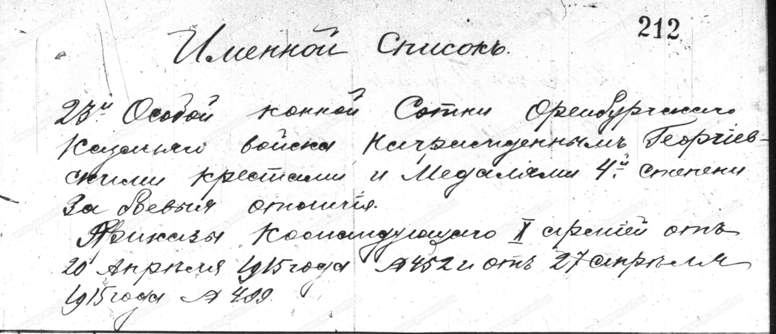 212
Именной Списокъ.
23й Особой конной Сотни Оренбургскаго
Казачьяго войска Награжденнымъ Георгіев-
скими крестами и Медалями 4й степени
За боевыя отличія.
Приказы Командующаго X арміей отъ
20 Апрѣля 1915 года №452 и отъ 27 апрѣля
1915 года №